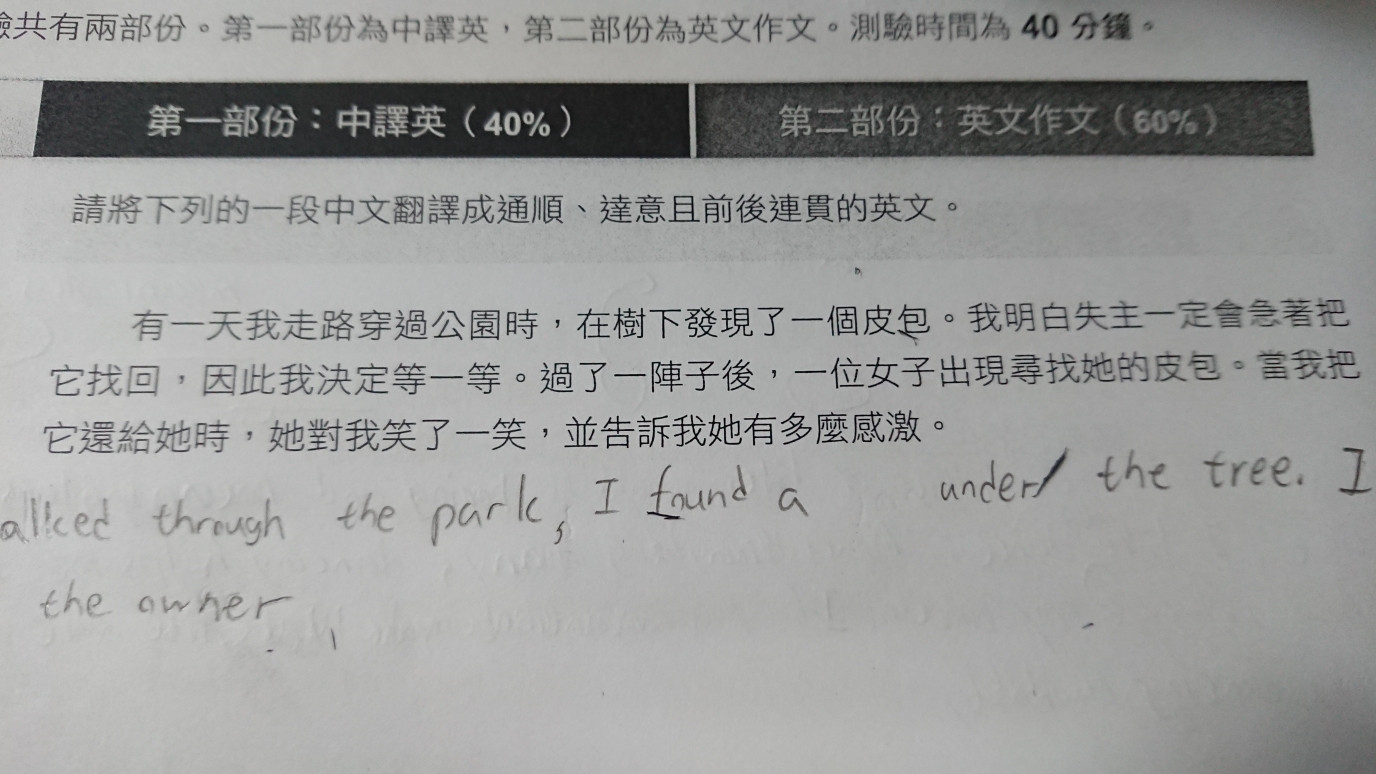 驗共有兩部份。第一部份為中譯英，第二部份為英文作文。測驗時間為 40 分鐘。
第一部份：中譯英（40%） 第二部份：英文作文（60%）
請將下列的一段中文翻譯成通順、達意且前後連貫的英文。
有一天我走路穿過公園時，在樹下發現了一個皮包。我明白失主一定會急著把
它找回，因此我決定等一等。過了一陣子後，一位女子出現尋找她的皮包。當我把
它還給她時，她對我笑了一笑，並告訴我她有多麼感激。
alked through the park, I found a under the tree. I
the owner